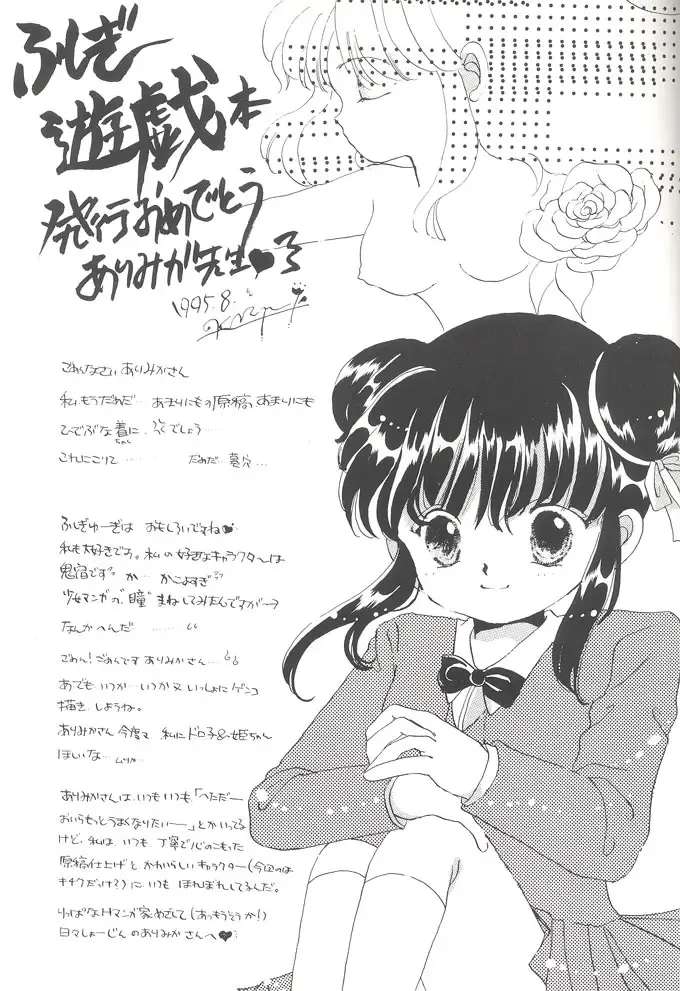 ふしぎ
遊戯本
発行おめでとう
ありみか先生♥
1995.8.
ごめんなさい ありみかさん
私もうだめだ… あまりにもの原稿 あまりにも
ひでぶな着に、 でしょう…
これにこりて だめだ…墓穴…
ふしぎゅーぎは おもしろいですね♥
私も大好きです。私の好きなキャラクターは
鬼宿です。か… かっこよすぎ
少女マンガっぽく瞳 まねしてみたんですが→
なんかへんだ ………
ごめん!ごめんです ありみかさん…
あでも いつか… いつか又 いっしょに ゲンコ
描き しようね。
ありみかさん 今度 私に ドロ子&姫ちゃん
ほしいな… ムリか…
ありみかさんは、いつもいつも「へただー
おいらもっとうまくなりたいーー」とかいってる
けど、私は、いつも、丁寧で心のこもった
原稿仕上げと かわいらしいキャラクター(今回のは
キチクだっけ?)に いつも ほれぼれしてるんだ。
りっぱなHマンガ家めざして(あっもうそうか!)
日々しょーじんの ありみか さんへ♥